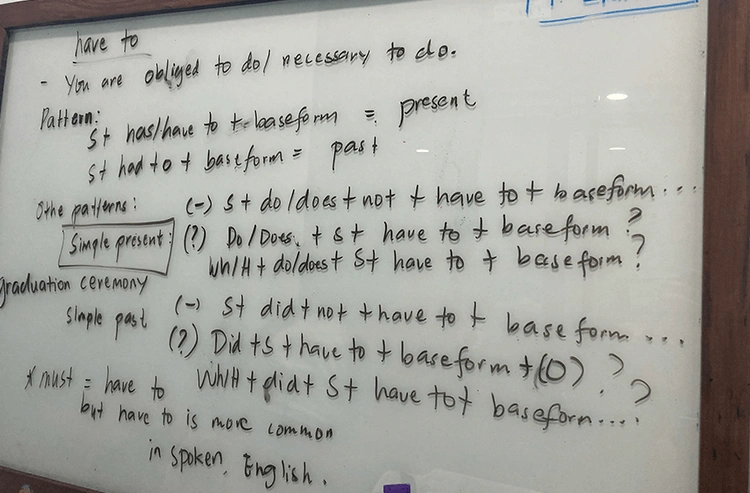 have to
- You are obliged to do/ necessary to do.
Pattern:
S+ has/have to + baseform = present
S+ had to + baseform = past
Othe patterns: (-) S+ do/does + not + have to + baseform...
Simple present: (?) Do/Does + S+ have to + baseform?
Wh/H + do/does + S+ have to + baseform?
graduation ceremony
Simple past (-) S+ did + not + have to + baseform...
(?) Did + S + have to + baseform + (O) ?
Wh/H + did + S+ have to + baseform....?
* must = have to
but have to is more common
in spoken English.